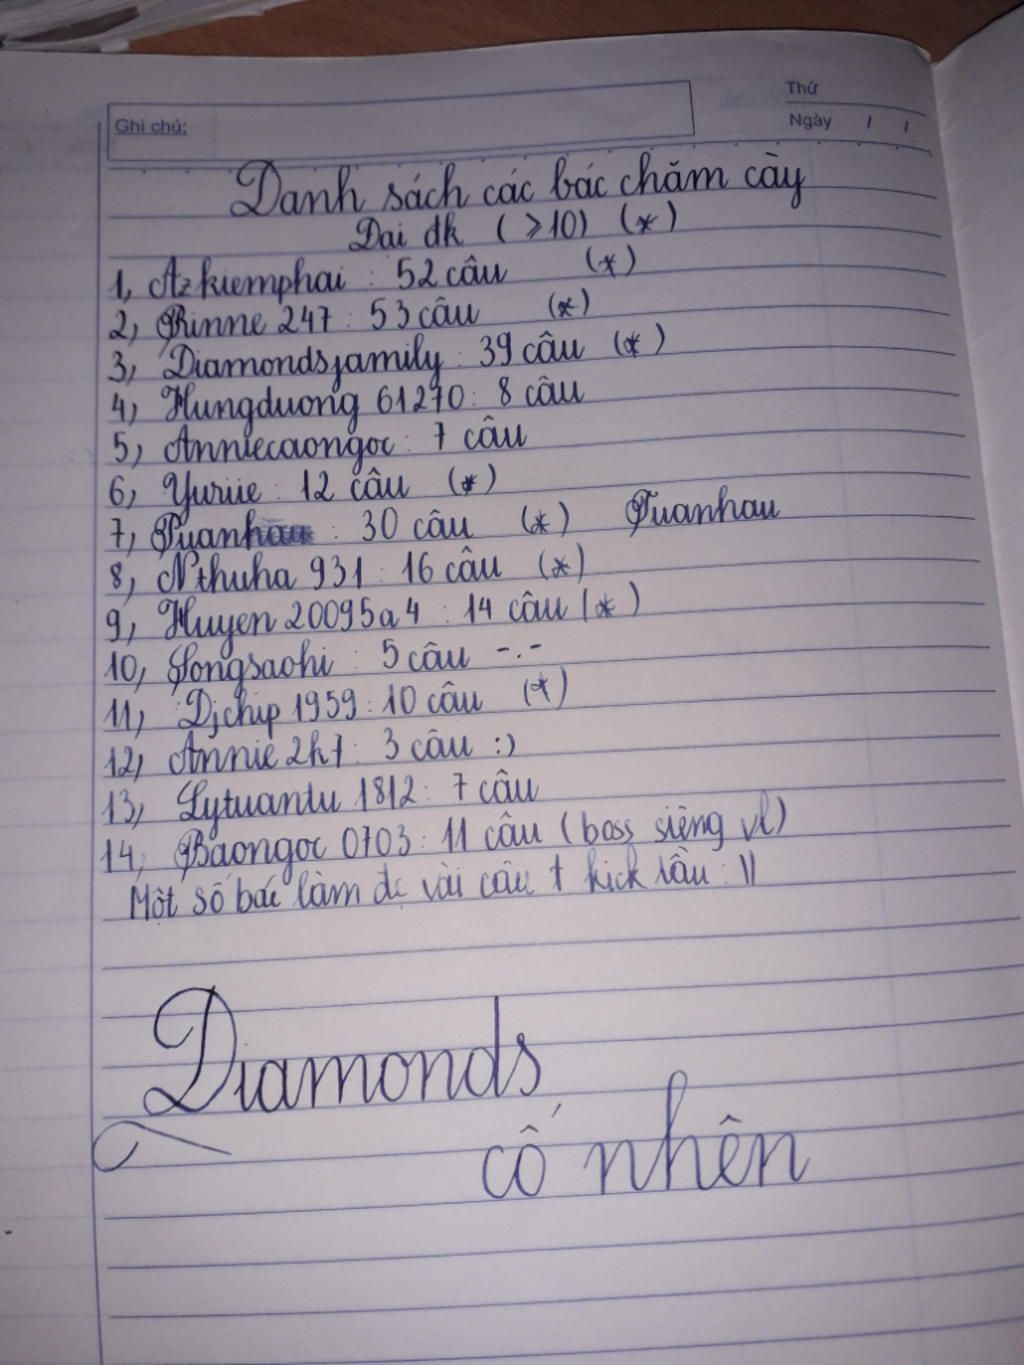 Thứ
Ghi chú:
Ngày / /
Danh sách các bác chăm cày
Dai đk (≥10) (*)
1, Azkiemphai : 52 câu (*)
2, Rinne 247 : 53 câu (*)
3, Diamondsjamily : 39 câu (*)
4, Hungduong 61270 : 8 câu
5, Anniecaongoc : 7 câu
6, Yuriie : 12 câu (*)
7, Tuanhau : 30 câu (*) Tuanhau
8, Nthuha 931 : 16 câu (*)
9, Huyen 20095a4 : 14 câu (*)
10, Songsaohi : 5 câu -.-
11, Djchip 1959 : 10 câu (*)
12, Annie 2k7 : 3 câu :)
13, Lytuantu 1812 : 7 câu
14, Baongoc 0703 : 11 câu (boss siêng vl)
Một số bác làm đc vài câu t kick rầu : ))
Diamonds
cố nhên